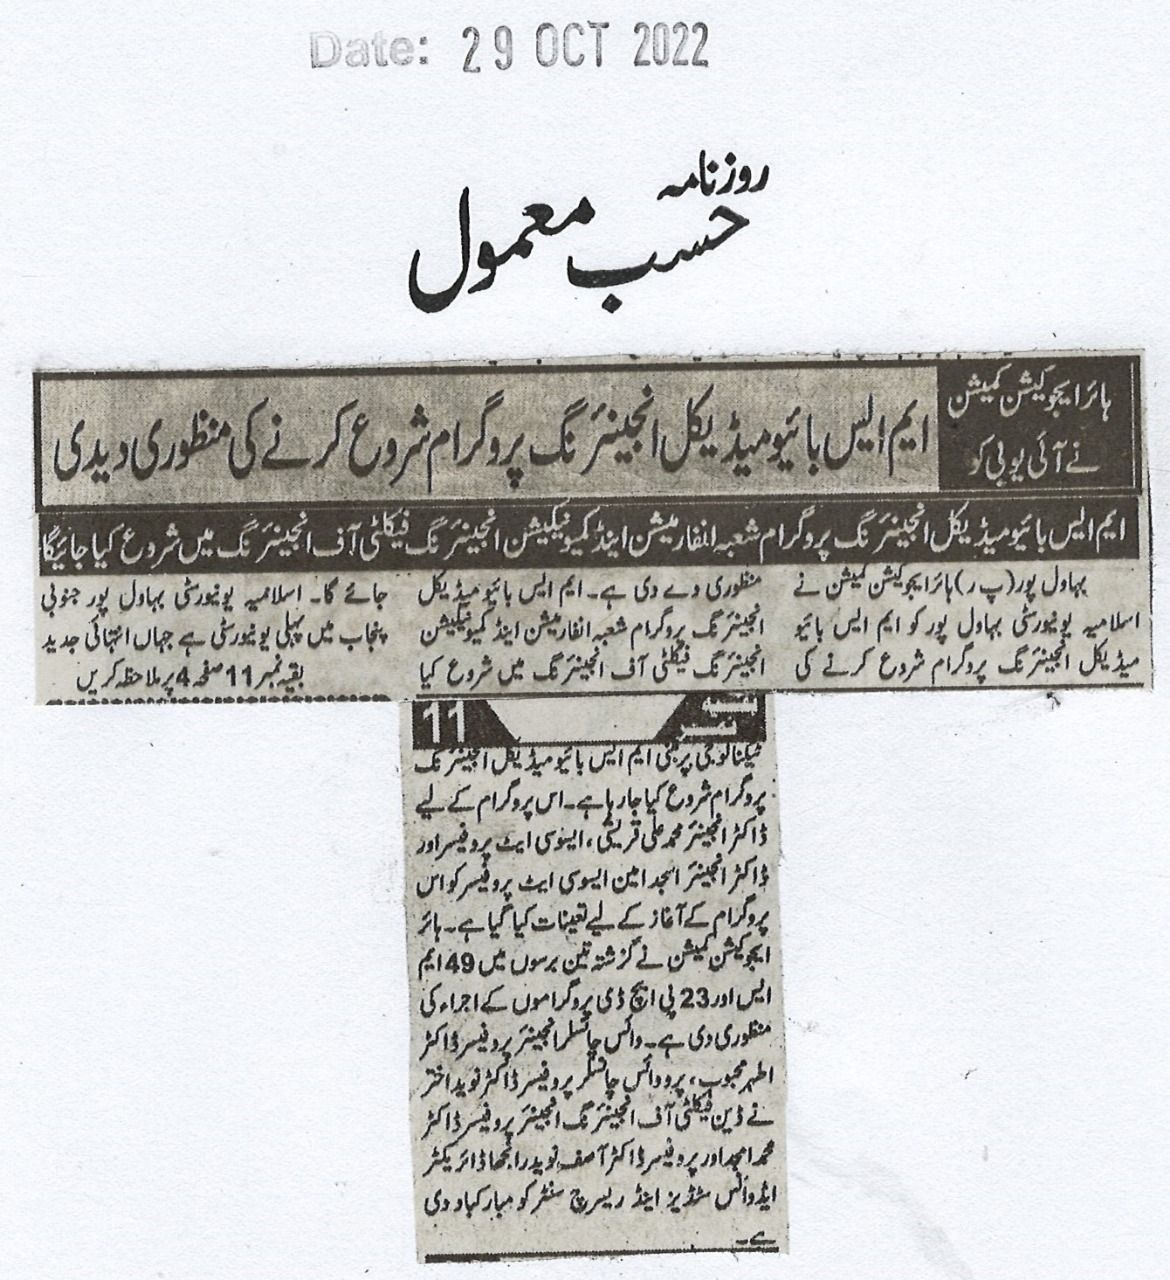 Date: 29 OCT 2022
روزنامہ
حسب معمول
ہائر ایجوکیشن کمیشن
نے آئی یو بی کو
ایم ایس بائیو میڈیکل انجینئرنگ پروگرام شروع کرنے کی منظوری دیدی
ایم ایس بائیو میڈیکل انجینئرنگ پروگرام شعبہ انفارمیشن اینڈ کمیونیکیشن انجینئرنگ فیکلٹی آف انجینئرنگ میں شروع کیا جائیگا
بہاول پور (پ ر) ہائر ایجوکیشن کمیشن نے
اسلامیہ یونیورسٹی بہاول پور کو ایم ایس بائیو
میڈیکل انجینئرنگ پروگرام شروع کرنے کی
منظوری دے دی ہے۔ ایم ایس بائیو میڈیکل
انجینئرنگ پروگرام شعبہ انفارمیشن اینڈ کمیونیکیشن
انجینئرنگ فیکلٹی آف انجینئرنگ میں شروع کیا
جائے گا۔ اسلامیہ یونیورسٹی بہاول پور جنوبی
پنجاب میں پہلی یونیورسٹی ہے جہاں انتہائی جدید
بقیہ نمبر 11 صفحہ 4 پر ملاحظہ کریں
بقیہ نمبر 11
ٹیکنالوجی پر مبنی ایم ایس بائیو میڈیکل انجینئرنگ
پروگرام شروع کیا جا رہا ہے۔ اس پروگرام کے لیے
ڈاکٹر انجینئر محمد علی قریشی، ایسوسی ایٹ پروفیسر اور
ڈاکٹر انجینئر امجد امین ایسوسی ایٹ پروفیسر کو اس
پروگرام کے آغاز کے لیے تعینات کیا گیا ہے۔ ہائر
ایجوکیشن کمیشن نے گزشتہ تین برسوں میں 49 ایم
ایس اور 23 پی ایچ ڈی پروگراموں کے اجراء کی
منظوری دی ہے۔ وائس چانسلر انجینئر پروفیسر ڈاکٹر
اطہر محبوب، پرو وائس چانسلر پروفیسر ڈاکٹر نوید اختر
نے ڈین فیکلٹی آف انجینئرنگ انجینئر پروفیسر ڈاکٹر
محمد امجد اور پروفیسر ڈاکٹر آصف نوید رانجھا ڈائریکٹر
ایڈوانس سٹڈیز اینڈ ریسرچ سنٹر کو مبارکباد دی
ہے۔